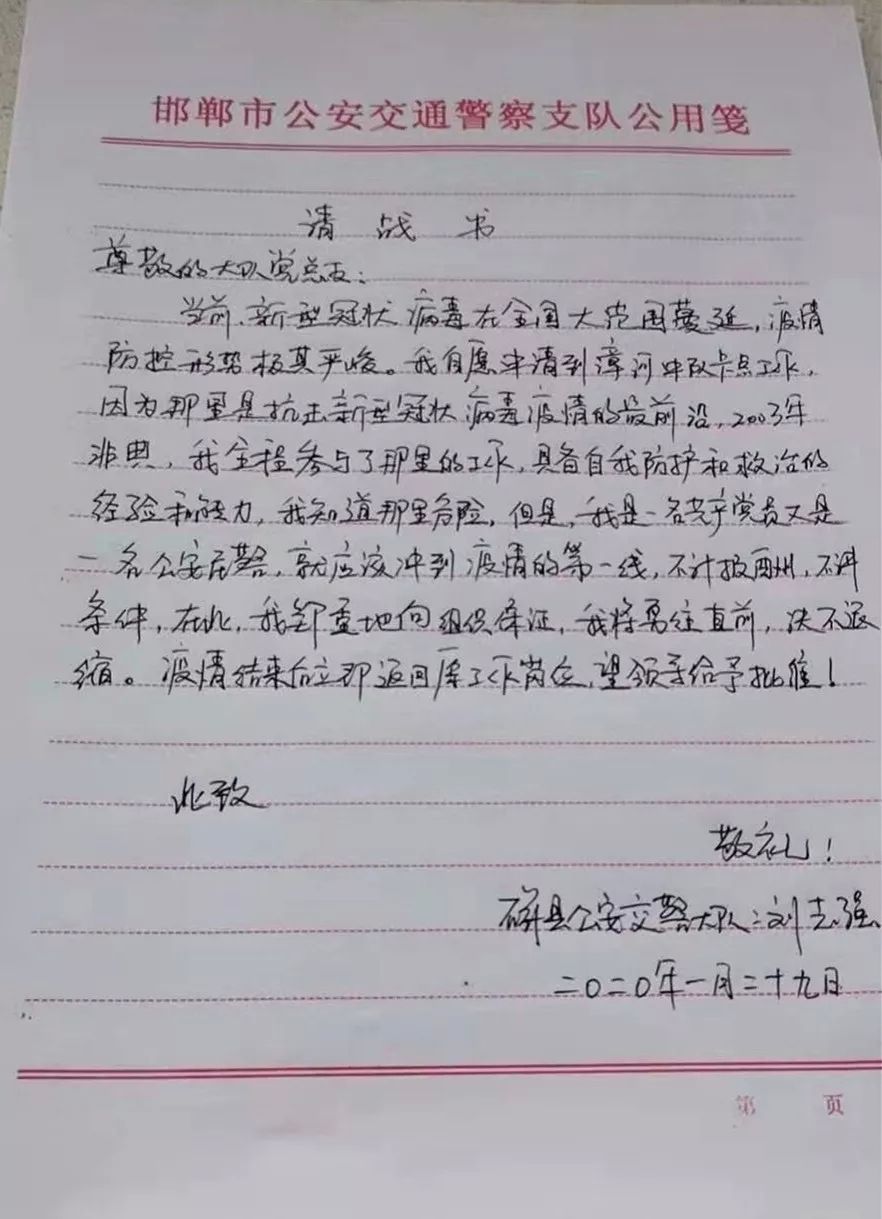 邯郸市公安交通警察支队公用笺
请战书
尊敬的大队党总支：
当前，新型冠状病毒在全国大范围蔓延，疫情
防控形势极其严峻。我自愿申请到漳河中队卡点工作，
因为那里是抗击新型冠状病毒疫情的最前沿，2003年
非典，我全程参与了那里的工作，具备自我防护和救治的
经验和能力，我知道那里危险，但是，我是一名共产党员又是
一名公安民警，就应该冲到疫情的第一线，不计报酬，不讲
条件，在此，我郑重地向组织保证，我将勇往直前，决不退
缩。疫情结束后立即返回原工作岗位，望领导给予批准！
此致
敬礼！
磁县公安交警大队：刘志强
二〇二〇年一月二十九日
第 页